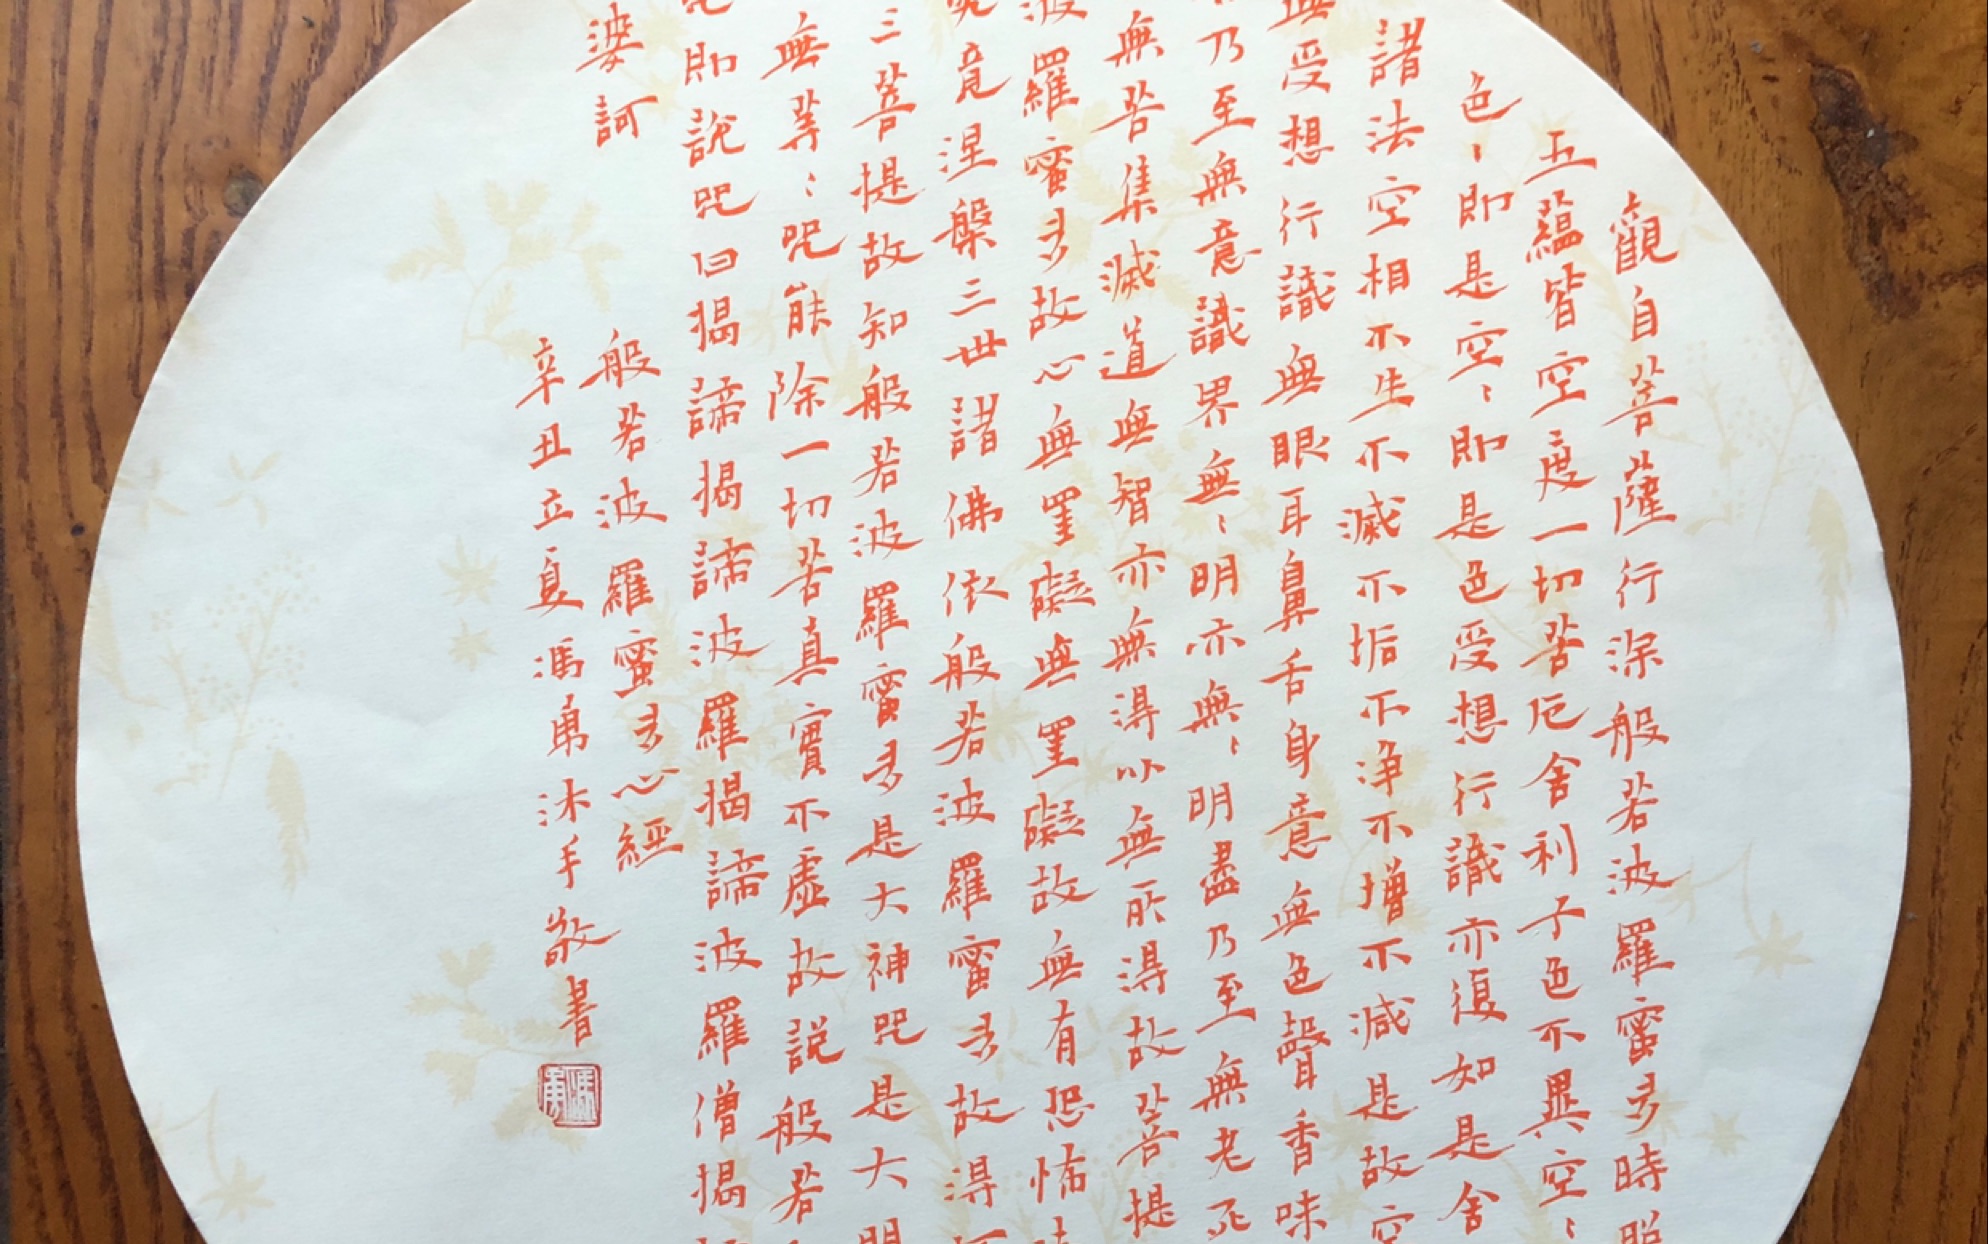 觀自菩薩行深般若波羅蜜多時照
五蘊皆空度一切苦厄舍利子色不異空〻
色〻即是空〻即是色受想行識亦復如是舍
諸法空相不生不滅不垢不净不增不減是故空
無受想行識無眼耳鼻舌身意無色聲香味
乃至無意識界無〻明亦無〻明盡乃至無老死
無苦集滅道無智亦無得以無所得故菩提
波羅蜜多故心無罣礙無罣礙故無有恐怖
究竟涅槃三世諸佛依般若波羅蜜多故得阿
三菩提故知般若波羅蜜多是大神咒是大明
無等〻咒能除一切苦真實不虛故説般若
咒即說咒曰揭諦揭諦波羅揭諦波羅僧揭
婆訶
般若波羅蜜多心經
辛丑立夏馮勇沐手敬書
馮勇